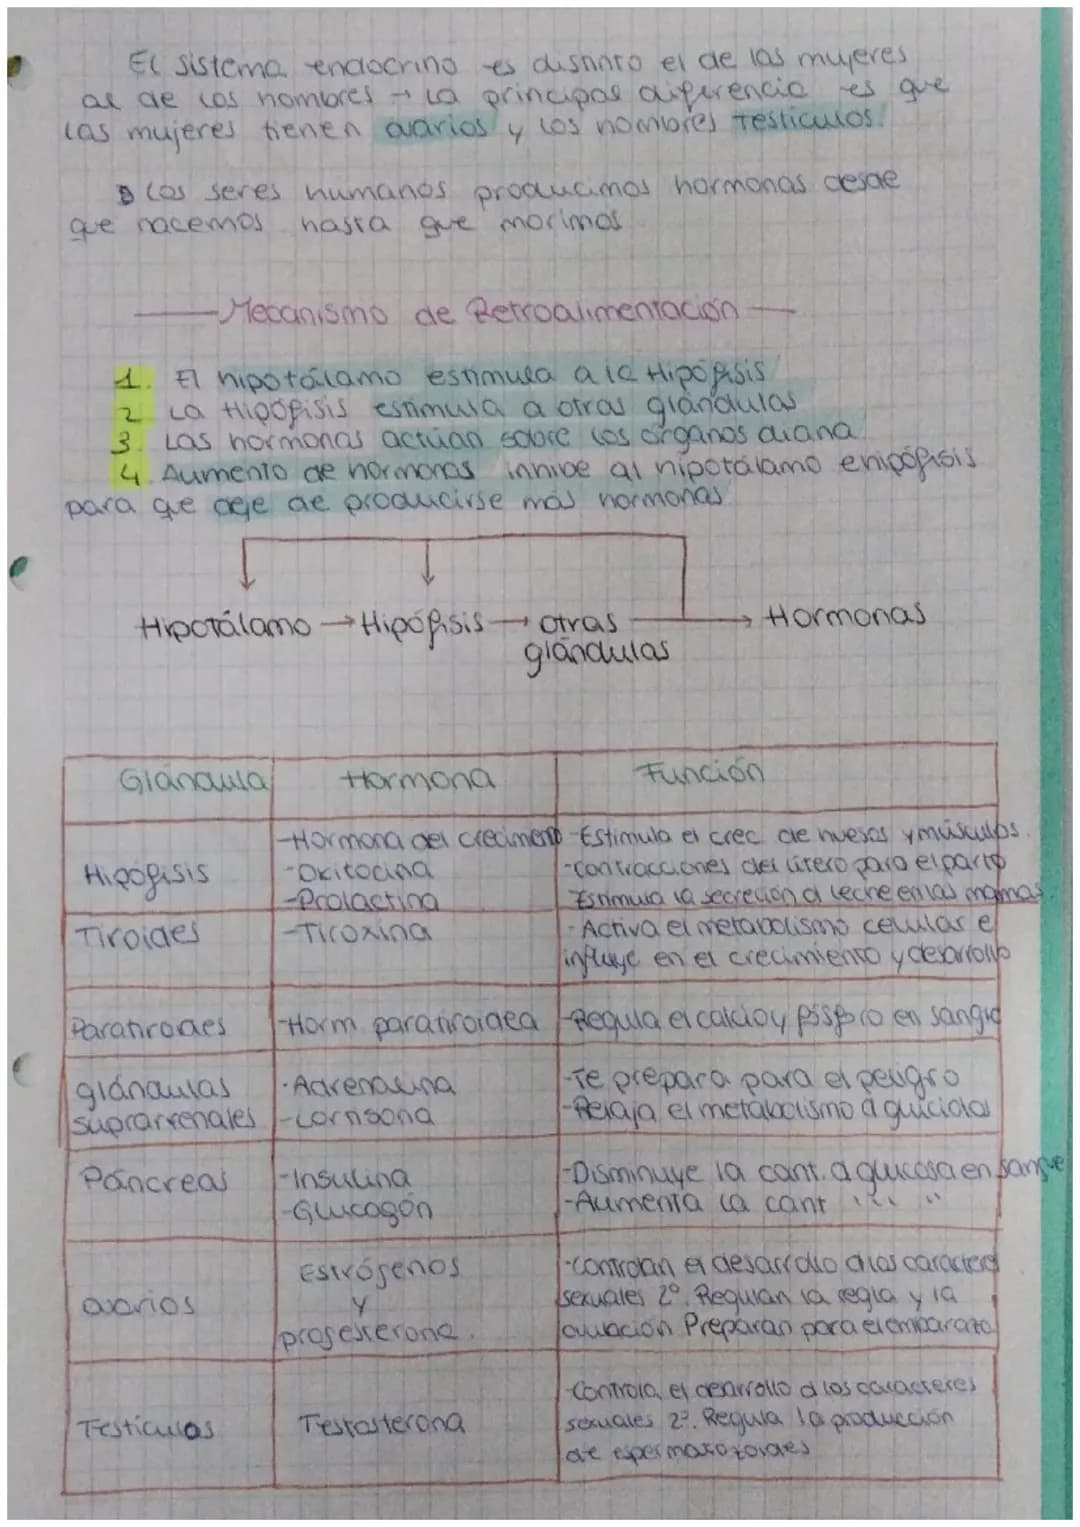 El sistema endocrino es distinto el de las mujeres
al de los hombres → La principal diferencia es que
las mujeres tienen ovarios y los hombres testículos.
Los seres humanos producimos hormonas desde
que nacemos hasta que morimos
Mecanismo de Retroalimentación
1. El hipotálamo estimula a la Hipófisis
2 La Hipófisis estimula a otras glándulas
3. Las hormonas actúan sobre los órganos diana
4. Aumento de hormonas inhibe al hipotálamo e hipófisis
para que deje de producirse más hormonas
Hipotálamo → Hipófisis → otras → Hormonas
glándulas
Glándula Hormona Función
-Hormona del crecimiento -Estimula el crec. de huesos y músculos.
Hipófisis -Oxitocina -Contracciones del útero para el parto
-Prolactina Estimula la secreción d leche en las mamas.
Tiroides -Tiroxina -Activa el metabolismo celular e
influye en el crecimiento y desarrollo
Paratiroides -Horm. paratiroidea -Regula el calcio y fósforo en sangre
glándulas -Adrenalina -Te prepara para el peligro
suprarrenales -Cortisona -Relaja el metabolismo d
Páncreas -Insulina -Disminuye la cant. d glucosa en sangre
-Glucagón -Aumenta la cant " " "
Estrógenos -Controlan el desarrollo d los caracteres
ovarios y sexuales 2º. Regulan la regla y la
progesterona. ovulación. Preparan para el embarazo
-Controla el desarrollo d los caracteres
Testículos Testosterona sexuales 2º. Regula la producción
de espermatozoides